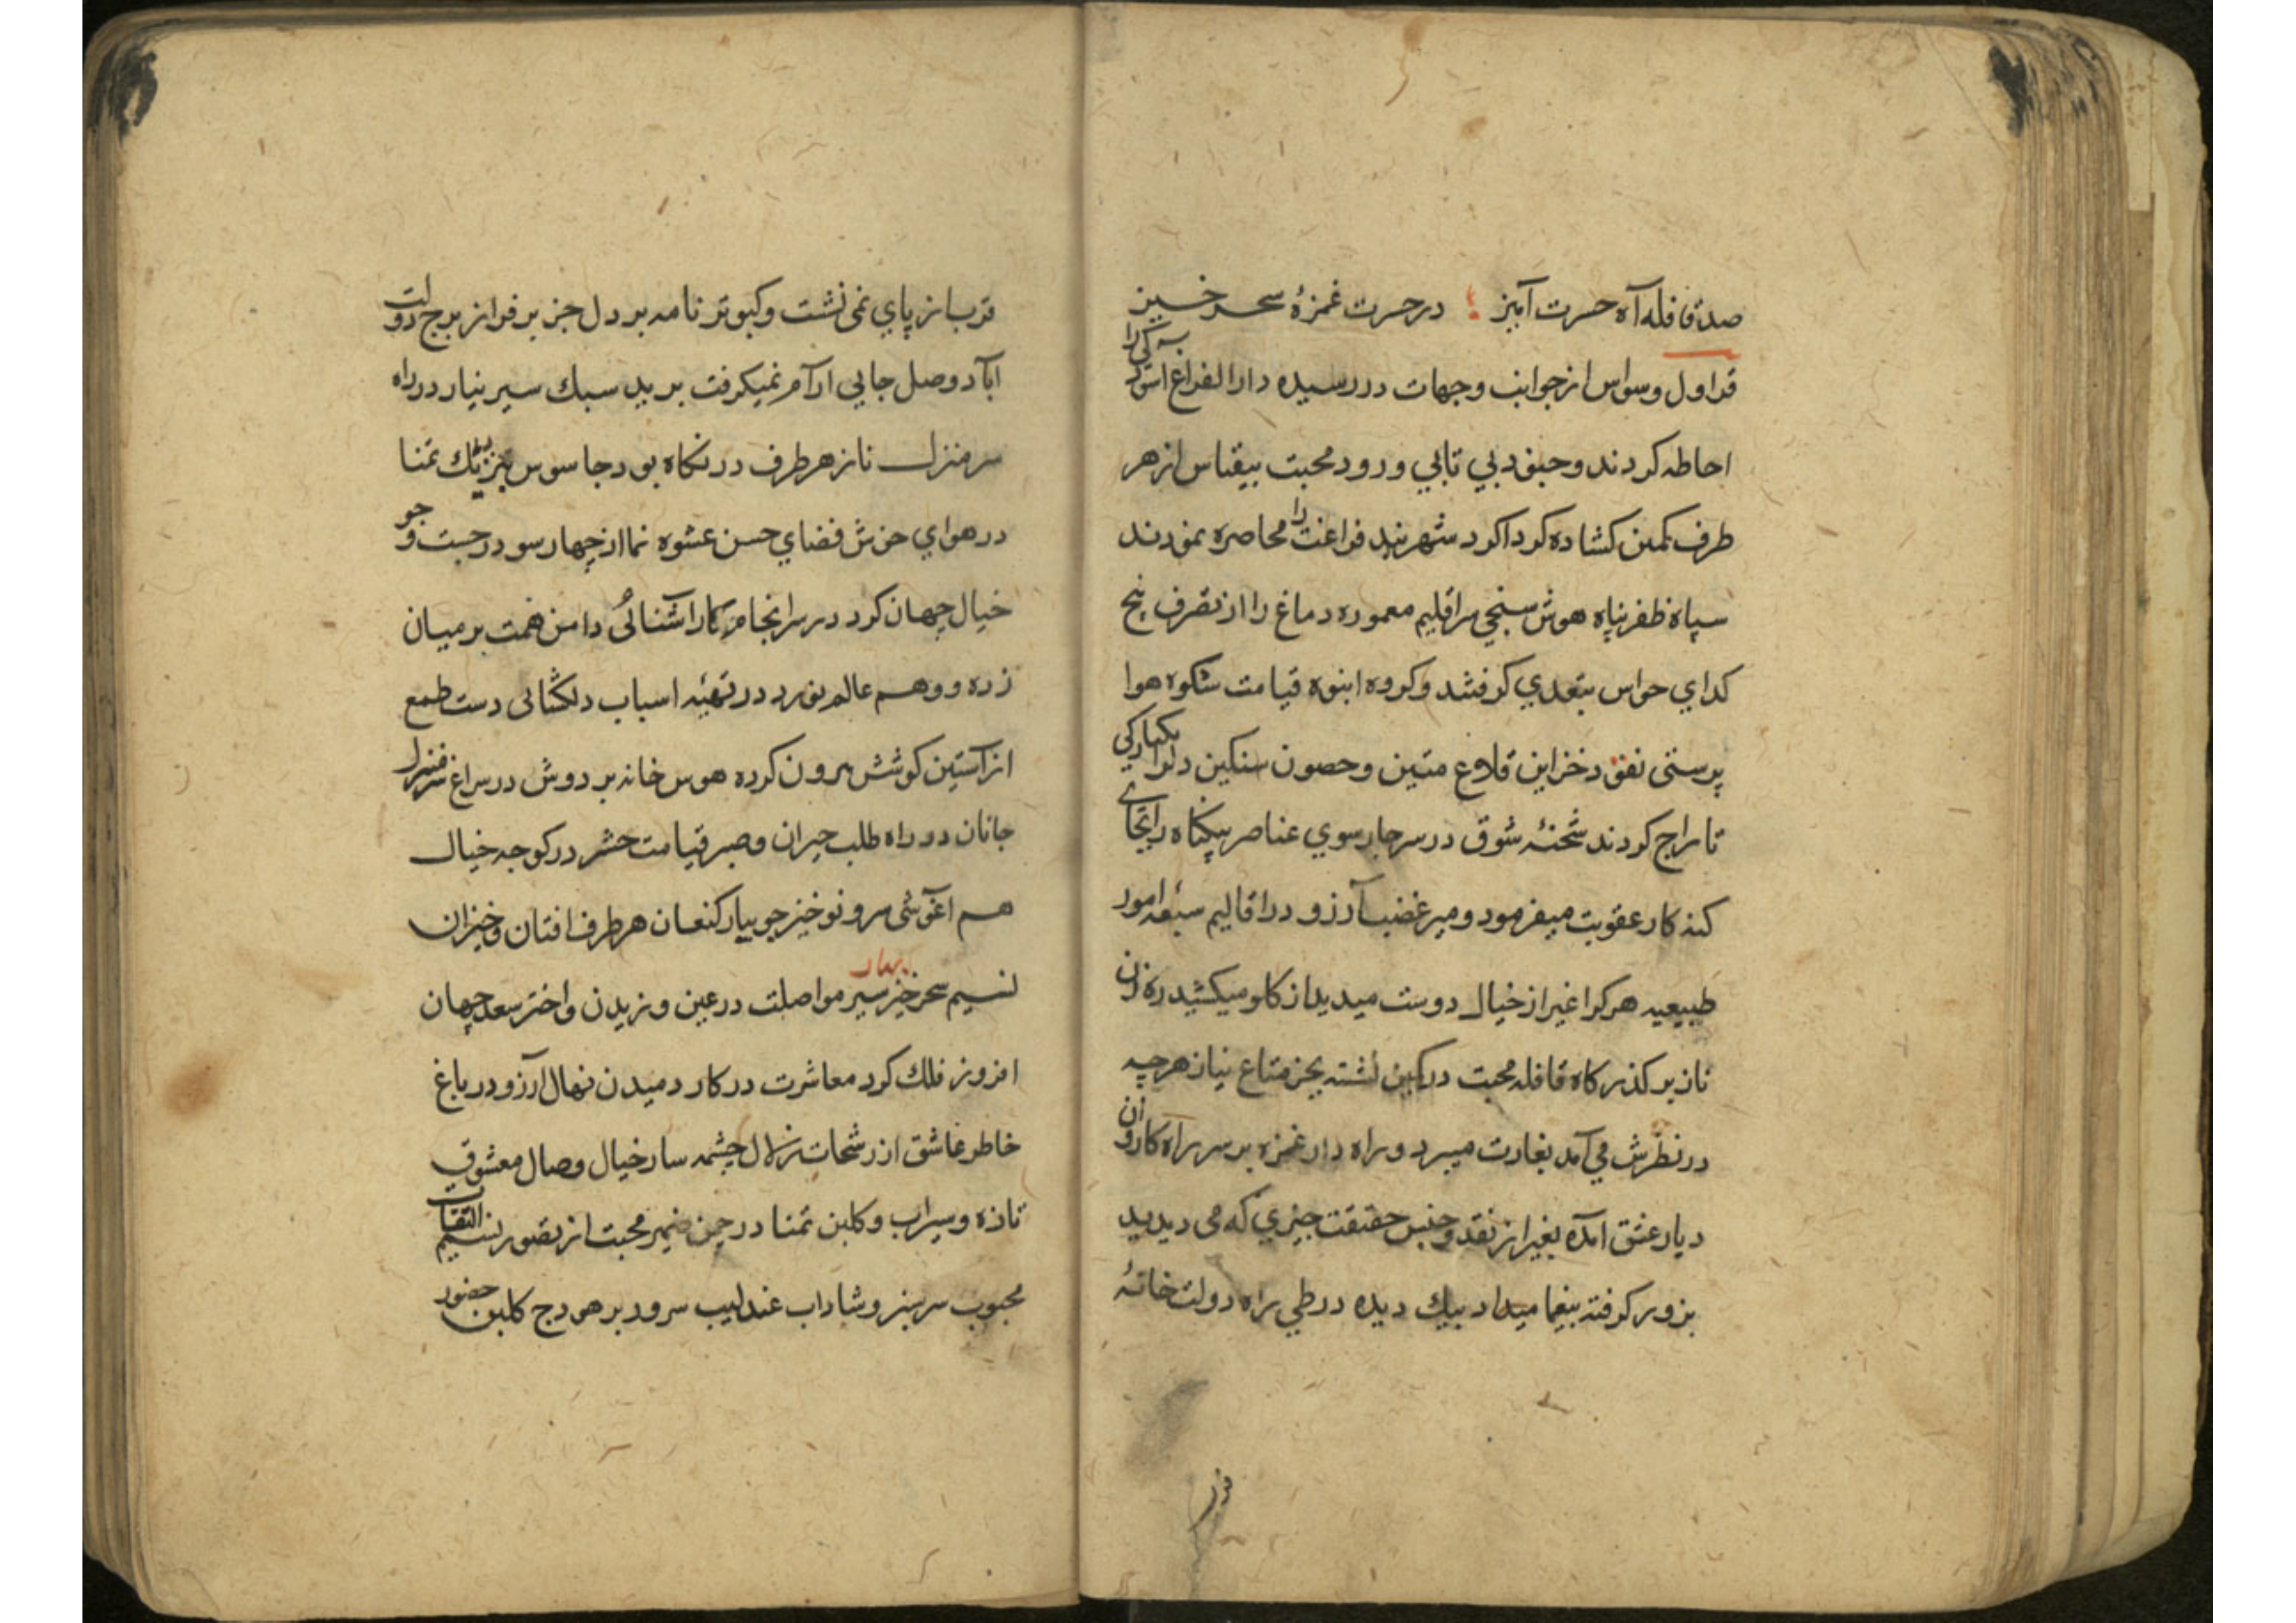 صد قافله آه حسرت آمیز در حسرت غمزهٔ سحر خیز
قراول وسواس از جوانب وجهات در رسیده دارالفراغ اسودکی را
احاطه کردند و جنود بی تابی و ورود محبت بیقیاس از هر
طرف کمین کشاده کرداکرد شهربند فراغت را محاصره نمودند
سپاه ظفر پناه هوش سنجی اقلیم معموره دماغ را از تصرف پنج
کدای حواس بتعدی کرفتند و کروه انبوه قیامت شکوه هوا
پرستی نقود خزاین قلاع متین و حصون سنکین دلرا یکبارکی
تاراج کردند شحنهٔ شوق در سر چارسوی عناصر بیکناه را بجای
کنه کار عقوبت میفرمود و میر غضب آرزو در اقالیم سبعهٔ امور
طبیعیه هر کرا غیر از خیال دوست میدید از کلو میکشید رهزن
ناز بر کذرکاه قافله محبت در کمین نشسته بجز متاع نیاز هرچه
در نظرش می آمد بغارت میبرد و راه دار غمزه بر سر راه کاروان
دیار عشق آمده بغیر از نقد و جنس حقیقت چیزی که می دیدید
بزور کرفته بیغما میداد بیک دیده در طی راه دولت خانهٔ
قرب از پای نمی نشت و کبوتر نامه بر دل جز بر فراز برج دولت
آباد وصل جایی ارام نمیکرفت برید سبک سیر نیاز در راه
سر منزل ناز هر طرف در نکاه بود جاسوس تمنا
در هوای خوش فضای حسن عشوه نما از چهار سو در جست و جو
خیال جهان کرد در سرانجام کار آشنائی دامن همت بر میان
زده و وهم عالم نورد در تهیّه اسباب دلکشائی دست طمع
از آستین کوشش برون کرده هوس خانه بر دوش در سراغ سر منزل
جانان در راه طلب حیران و صبر قیامت حشر در کوچه خیال
هم اغوشی سرو نو خیز جویبار کنعان هر طرف افتان و خیزان
نسیم سحر خیز سیر بهار مواصلت در عین وزیدن و اختر سعد جهان
افروز فلک کرد معاشرت در کار دمیدن نهال آرزو در باغ
خاطر عاشق از رشحات زلال چشمه سار خیال وصال معشوق
تازه و سیراب و کلبن تمنا در چمن ضمیر محبت از تصور نسیم التفات
محبوب سرسبز و شاداب عندلیب سرود بر هودج کلبن حضور